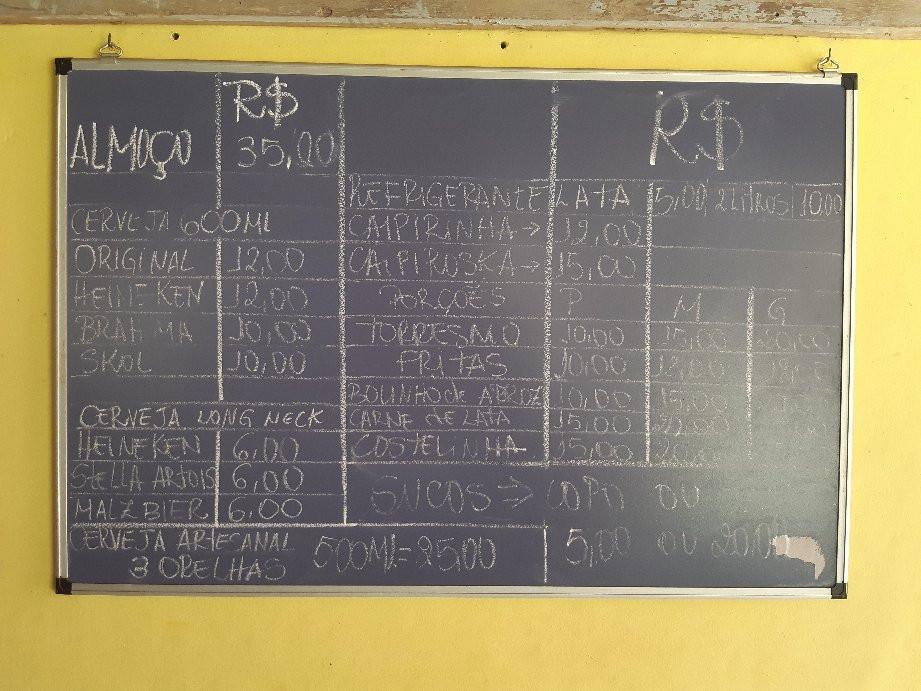 R$ R$
ALMOÇO 35,00
REFRIGERANTE LATA 5,00 2 LITROS 10,00
CERVEJA 600ML CAIPIRINHA → 12,00
ORIGINAL 12,00 CAIPIRUSKA → 15,00
HEINEKEN 12,00 PORÇÕES P M G
BRAHMA 10,00 TORRESMO 10,00 15,00
SKOL 10,00 FRITAS 10,00 15,00
BOLINHO de ARROZ 10,00 15,00
CERVEJA LONG NECK CARNE de LATA 15,00
HEINEKEN 6,00 COSTELINHA 15,00
STELLA ARTOIS 6,00 SUCOS → COPO OU
MALZBIER 6,00
CERVEJA ARTESANAL 500ML = 25,00 5,00 OU
3 ORELHAS